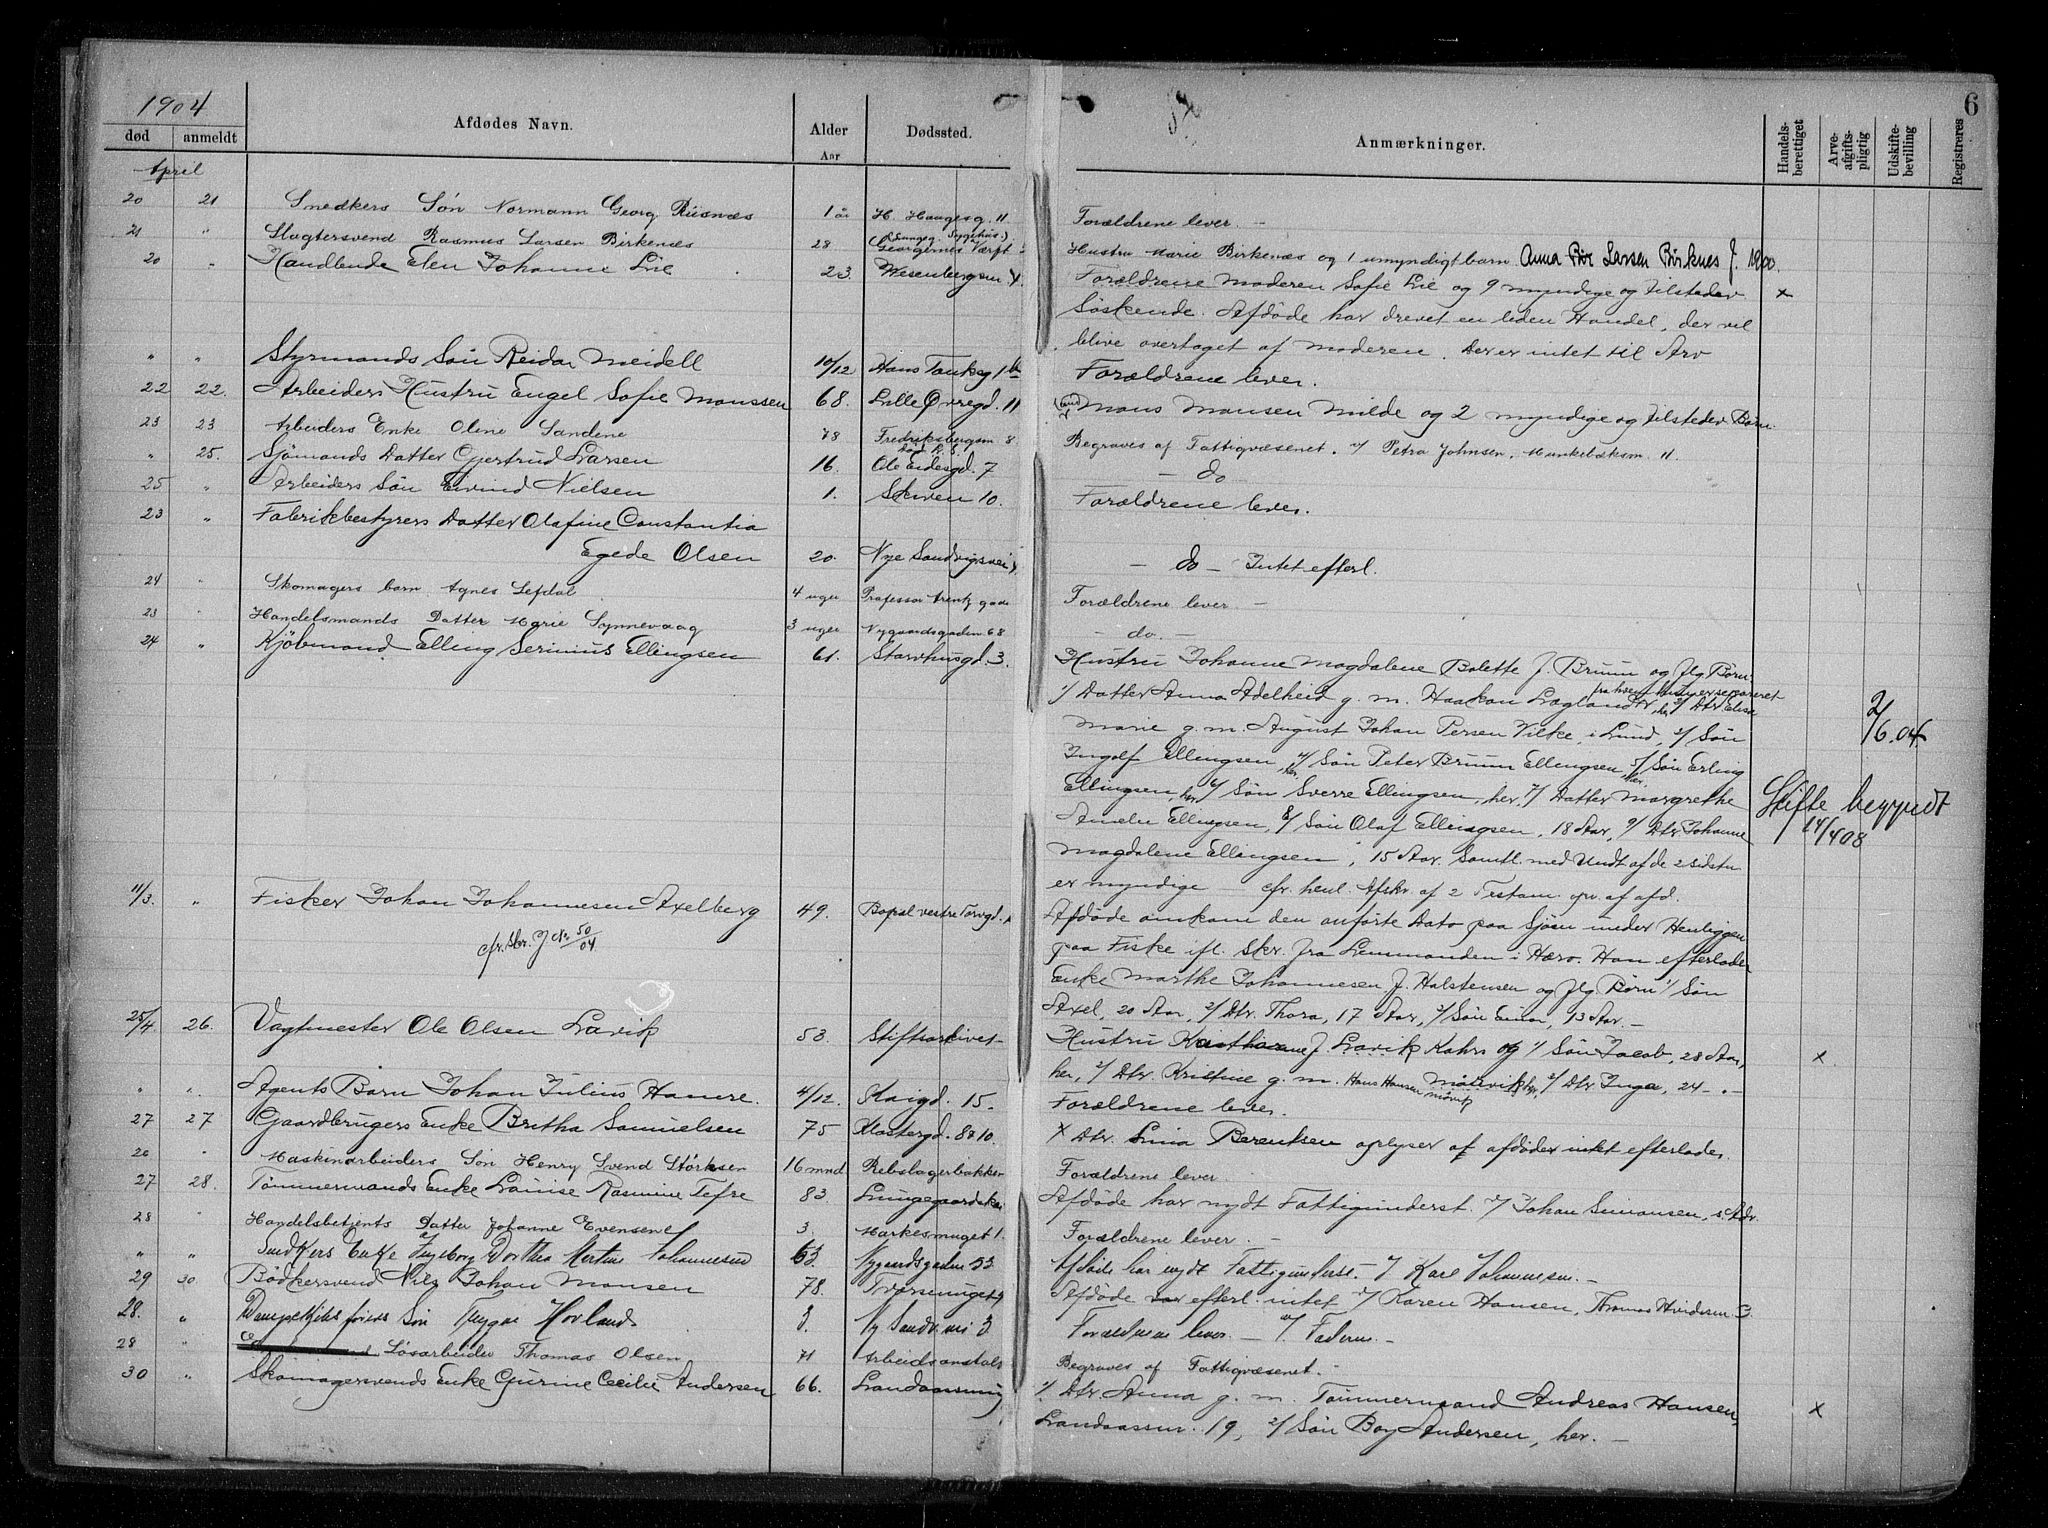 1904
død anmeldt Afdødes Navn. Alder Aar Dødssted. Anmærkninger. Handelsberettiget Arveafgiftspligtig Udskiftebevilling Registreres 6
April
20 21 Snedkers Søn Normann Georg Risnæs 1 år H. Haugesg. 11 Forældrene lever. —
21 " Slagtersvend Rasmus Larsen Birkenæs 28 (Lungeg. Sygehus.) Georgernes Værft Hustru Marie Birkenæs og 1 umyndigt barn Anna Larsen Birknes f. 1900.
20 " Handlende Elen Johanne Lie 23 Wesenbergsm 4. Forældrene Moderen Sofie Lie og 9 myndige og tilstedev x
Søskende. Afdøde har drevet en liden Handel, der vil
blive overtaget af moderen. Der er intet til Arv
" " Styrmands Søn Reidar Meidell 10/12 Hans Tanksg 1b Forældrene lever.
22 22. Arbeiders Hustru Engel Sofie Monssen 68. Lille Øvregd. 11 Mons Monsen Milde og 2 myndige og tilstedev Børn
23 23 Arbeiders Enke Oline Sandene 78 Fredriksbergsm 8 Begraves af Fattigvæsenet. v/ Petra Johnsen, Munkebæksm. 11.
" 25. Sjømands Datter Gjertrud Larsen 16. Ole Eidesgd. 7 — do —
25 " Arbeiders Søn Eivind Nielsen 1. Skiven 10. Forældrene lever.
23 " Fabrikbestyrers Datter Olafine Constantia
Egede Olsen 20. Nye Sandvigsvei — do — Intet efterl.
24 " Skomagers barn Agnes Sefdal 4 uger Professor Arentz gade Forældrene lever. —
23 " Handelsmands Datter Marie Synnevaag 3 uger Nygaardsgaden 68 — do. —
24 " Kjøbmand Elling Serinius Ellingsen 61. Starvhusgd. 3. Hustru Johanne Magdalene Bolette f. Bruun og flg Børn:
1/ Datter Anna Adelheid g. m. Haakon Løgland fra hvem hun er separeret her, 2/ Dtr Elisa
Marie g. m. August Johan Persen Vilke, i Lund, 3/ Søn
Ingolf Ellingsen, her, 4/ Søn Peter Bruun Ellingsen, her 5/ Søn Erling
Ellingsen, her, 6/ Søn Sverre Ellingsen, her, 7/ Datter Margrethe
Amelie Ellingsen, 8/ Søn Olaf Ellingsen, 18 Aar, 9/ Dtr Johanne
Magdalene Ellingsen, 15 Aar. Samtl. med Undt af de 2 sidste
er myndige — cfr. henl. Afskr. af 2 Testam. opr. af afd.
2/6.04
Skifte begyndt
14/4 08
11/3. " Fisker Johan Johannesen Axelberg 49. Bopæl vestre Torvgd. Afdøde omkom den anførte Dato paa Sjøen under Henliggen
cfr. Skr. J No 50/04 paa Fiske ifl. Skr. fra Lensmanden i Herø. Han efterlader
Enke Marthe Johannesen f. Halstensen og flg Børn 1/ Søn
Axel, 20 Aar, 2/ Dtr. Thora, 17 Aar, 3/ Søn Einar, 13 Aar. —
25/4 26. Vagtmester Ole Olsen Larvik 53. Stiftsarkivet Hustru Kasthorine f. Larvik Kahrs og 1/ Søn Jacob, 28 Aar, x
her, 2/ Dtr Kristine g. m. Hans Hansen Møvik, 3/ Dtr Inga, 24 —. —
" " Agents Barn Johan Julius Hamre. 4/12. Kaigd. 15. Forældrene lever.
27 27 Gaardbrugers Enke Britha Samuelsen 75 Klostergd. 8 & 10. x Dtr. Lina Berentsen oplyser at afdøde intet efterlader.
26 " Maskinarbeiders Søn Henry Svend Størksen 16 mnd Rebslagerbakken Forældrene lever.
27 28. Tømmermands Enke Lovise Rasmine Tefre 83. Lungegaardskai Afdøde har nydt Fattigunderst. v/ Johan Simonsen, s. Adr.
28 " Handelsbetjents Datter Johanne Evensen 3 Markesmuget 1. Forældrene lever. —
" " Snedkers Enke Ingeborg Dorthea Mortine Johannesen 63. Nygaardsgaden 33 Afdøde har nydt Fattigunderst. — v/ Karl Johannesen. —
29 30 Bødkersvend Nils Johan Monsen 78. Tværsmuget Afdøde efterl. intet v/ Karen Hansen, Thomas Hvidesm 3.
28. " Dampskibsførers Søn Trygve Hovland 3. Ny Sandv.vei 3 Forældrene lever. — v/ Faderen —
28 " Løsarbeider Thomas Olsen 71 Arbeidsanstal Begraves af Fattigvæsenet. —
30 " Skomagersvends Enke Gurine Cecilie Andersen 66. Landaassmug 1/ Dtr Anna g. m. Tømmermand Andreas Hansen, x
Landaassm. 19, 2/ Søn Boy Andersen, her. —